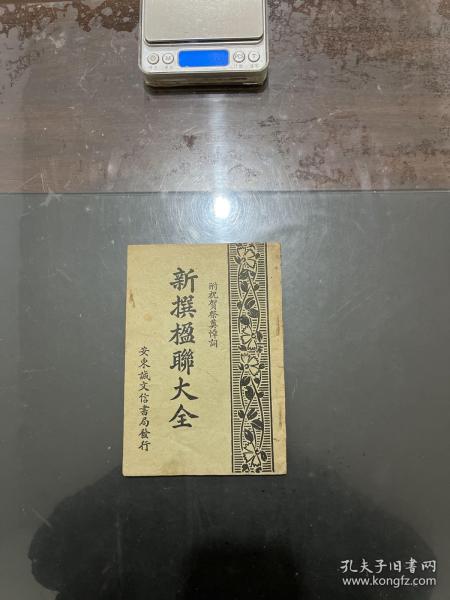 附祝賀祭奠悼詞
新撰楹聯大全
安東誠文信書局發行
孔夫子旧书网
www.kongfz.com